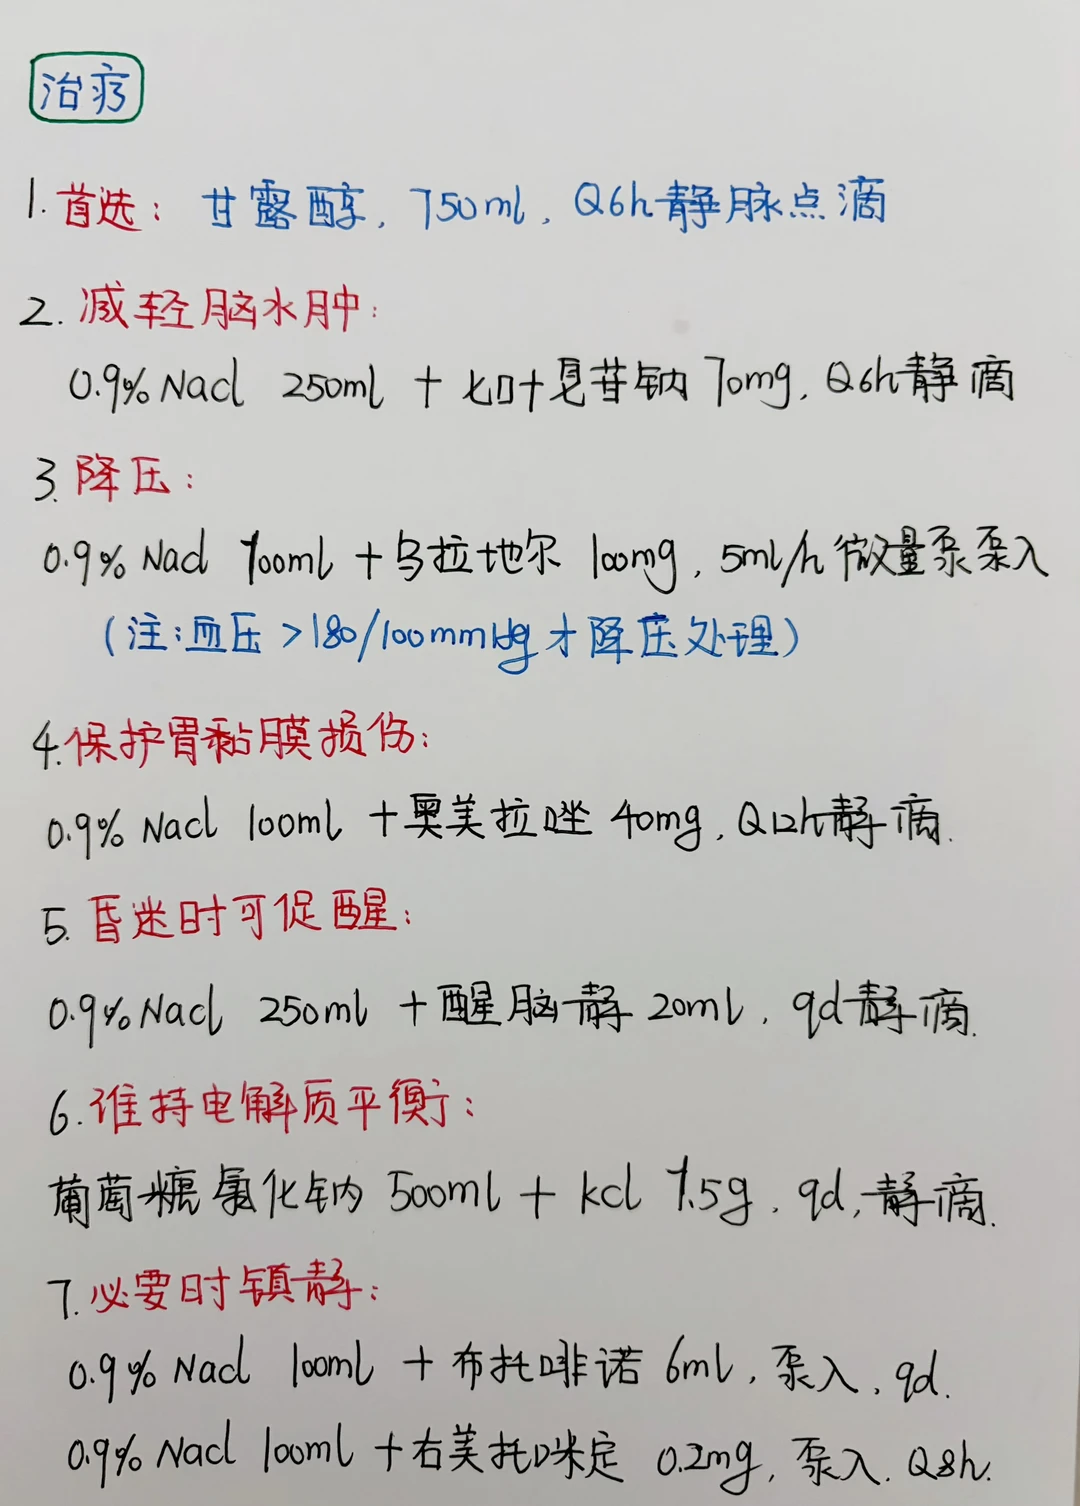 治疗
1. 首选: 甘露醇, 750ml, Q6h静脉点滴
2. 减轻脑水肿:
0.9% Nacl 250ml + 七叶皂苷钠 70mg, Q6h静滴
3. 降压:
0.9% Nacl 100ml + 乌拉地尔 100mg, 5ml/h 微量泵泵入
(注:血压 >180/100mmHg才降压处理)
4. 保护胃黏膜损伤:
0.9% Nacl 100ml + 奥美拉唑 40mg, Q12h静滴.
5. 昏迷时可促醒:
0.9% Nacl 250ml + 醒脑静 20ml, qd静滴.
6. 维持电解质平衡:
葡萄糖氯化钠 500ml + kcl 1.5g, qd, 静滴.
7. 必要时镇静:
0.9% Nacl 100ml + 布托啡诺 6ml, 泵入, qd.
0.9% Nacl 100ml + 右美托咪定 0.2mg, 泵入. Q8h.